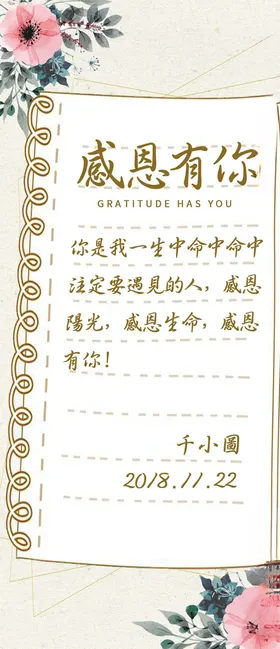 感恩有你
GRATITUDE HAS YOU
你是我一生中命中命中
注定要遇見的人，感恩
陽光，感恩生命，感恩
有你！
千小圖
2018.11.22